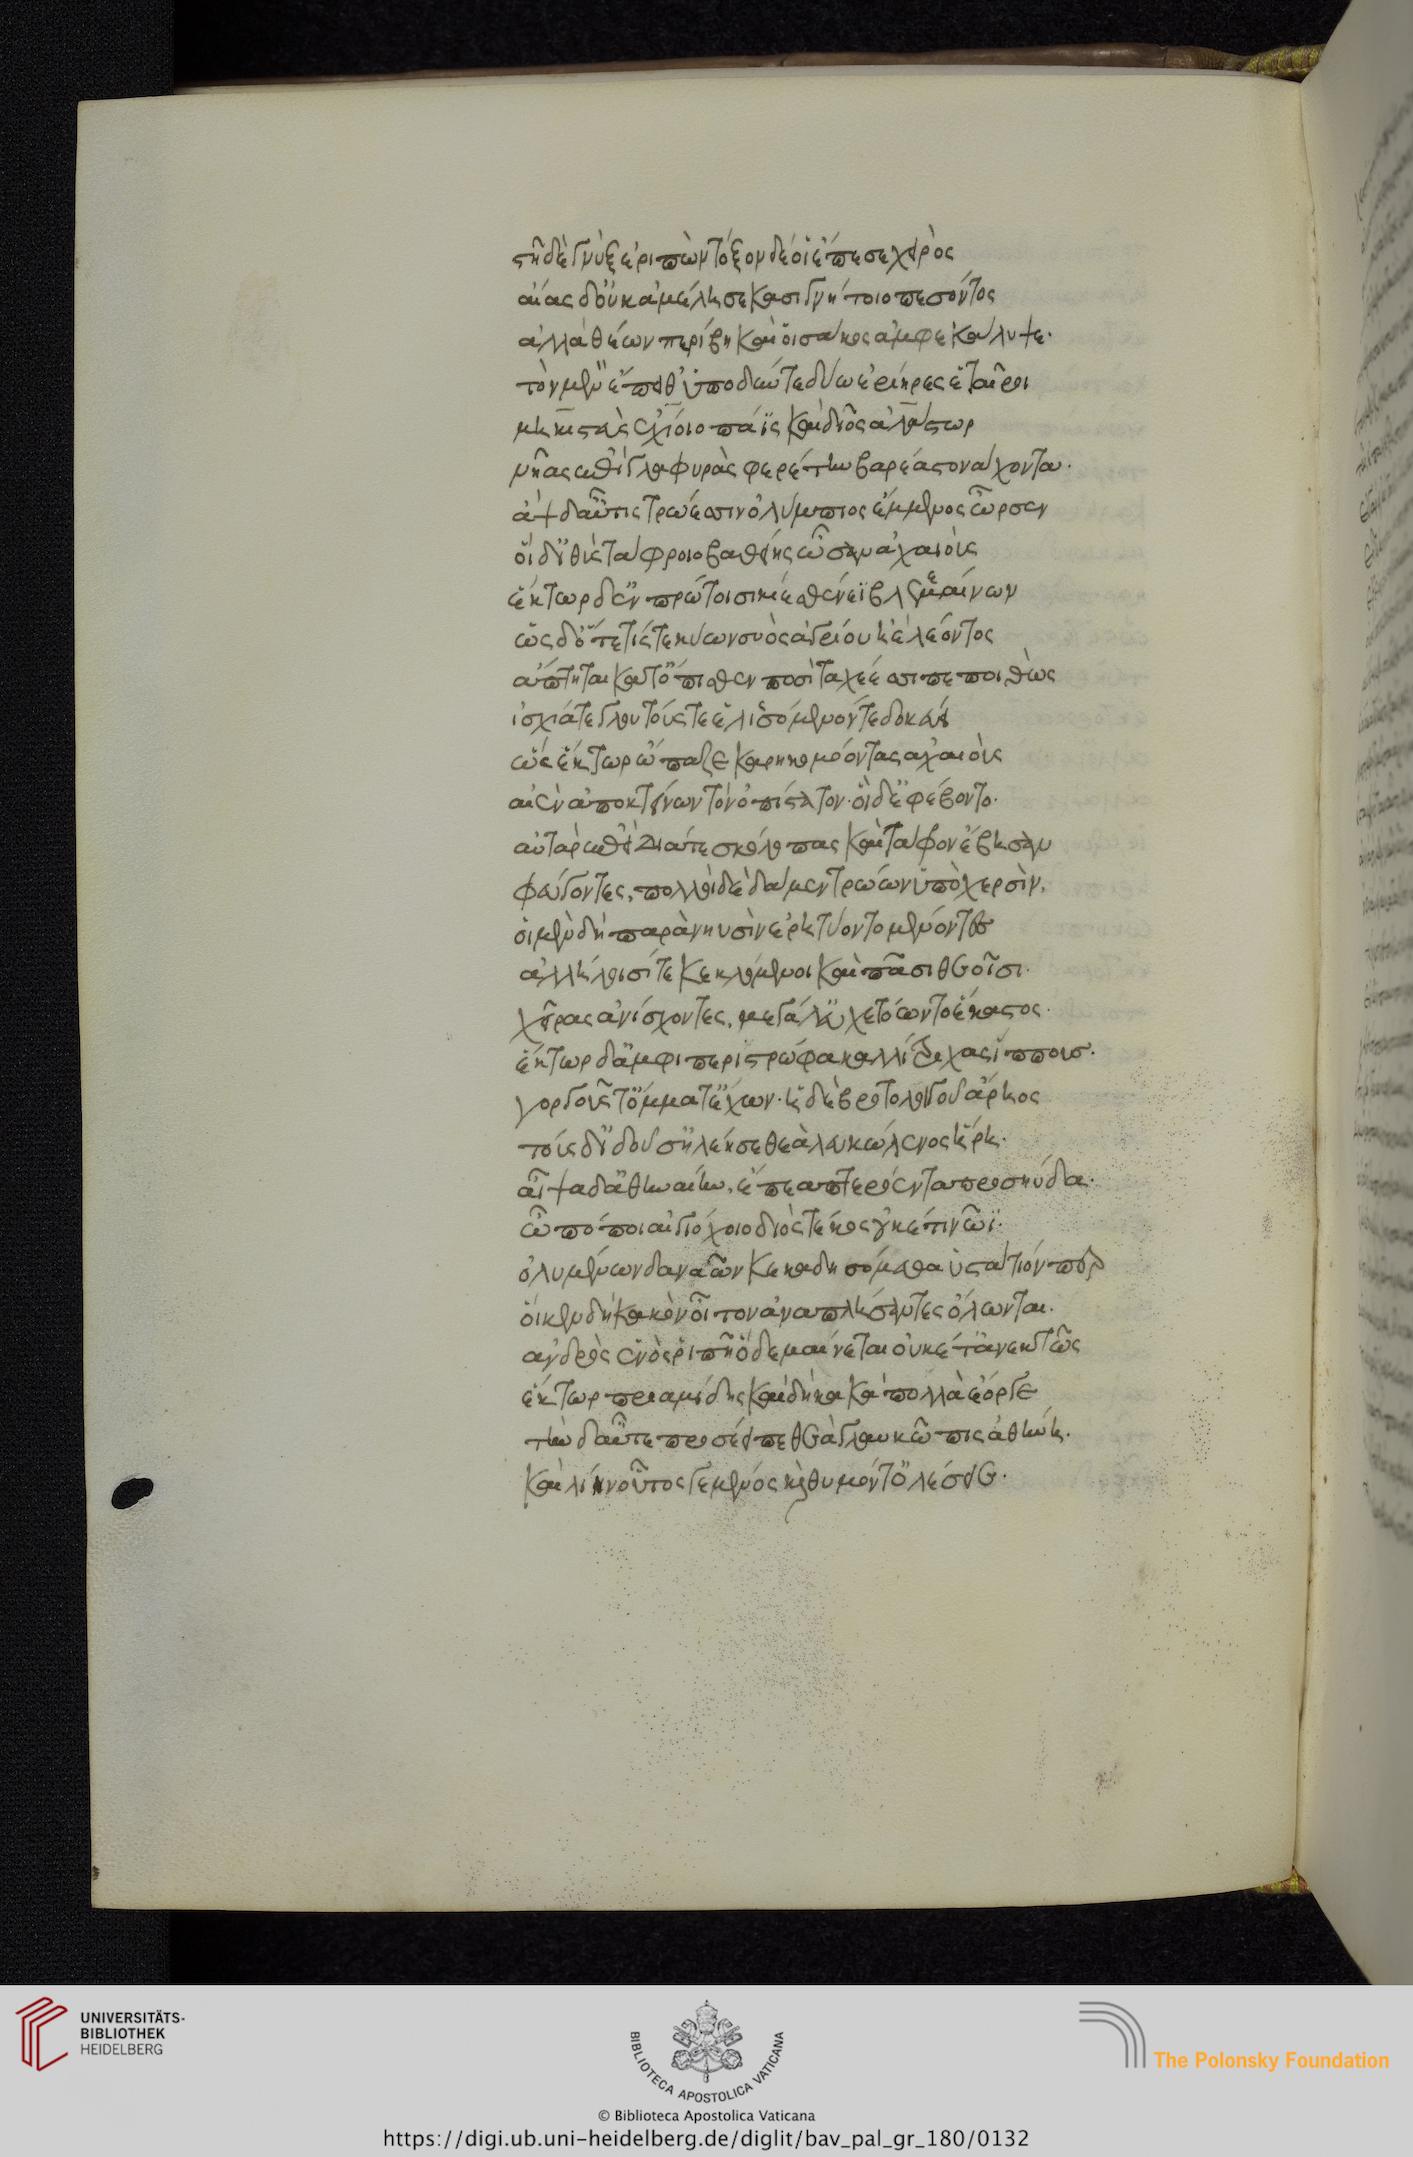 στῆ δὲ γνὺξ ἐριπὼν τόξον δέ οἱ ἔπεσε χειρός
αἴας δ' οὐκ ἀμέλησε κασιγνήτοιο πεσόντος
ἀλλὰ θέων περίβη καὶ οἱ σάκος ἀμφεκάλυψε.
τὸν μὲν ἔπειθ' ὑποδύντε δύω ἐρίηρες ἑταῖροι
μηκιστεὺς ἐχίοιο πάϊς καὶ δῖος ἀλάστωρ
νῆας ἐπὶ γλαφυρὰς φερέτην βαρέα στενάχοντα.
ἂψ δ' αὖτις τρώεσσιν ὀλύμπιος ἐν μένος ὦρσεν
οἱ δ' ἰθὺς τάφροιο βαθείης ὦσαν ἀχαιοὺς
ἕκτωρ δ' ἐν πρώτοισι κίε σθένεϊ βλεμεαίνων
ὡς δ' ὅτε τίς τε κύων συὸς ἀγρίου ἠὲ λέοντος
ἅπτηται κατόπισθεν ποσὶ ταχέεσσι πεποιθὼς
ἰσχία τε γλουτούς τε ἑλισσόμενόν τε δοκεύει
ὣς ἕκτωρ ὤπαζε καρηκομόωντας ἀχαιοὺς
αἰὲν ἀποκτείνων τὸν ὀπίστατον. οἱ δὲ φέβοντο.
αὐτὰρ ἐπεὶ διά τε σκόλοπας καὶ τάφρον ἔβησαν
φεύγοντες, πολλοὶ δὲ δάμεν τρώων ὑπὸ χερσὶν,
οἱ μὲν δὴ παρὰ νηυσὶν ἐρητύοντο μένοντες
ἀλλήλοισί τε κεκλόμενοι καὶ πᾶσι θεοῖσι.
χεῖρας ἀνίσχοντες, μεγάλ' εὐχετόωντο ἕκαστος.
ἕκτωρ δ' ἀμφιπεριστρώφα καλλίτριχας ἵππους.
γοργοῦς ὄμματ' ἔχων. ἠδὲ βροτολοιγοῦ ἄρηος
τοὺς δὲ ἰδοῦσ' ἐλέησε θεὰ λευκώλενος ἥρη.
αἶψα δ' ἀθηναίην, ἔπεα πτερόεντα προσηύδα.
ὢ πόποι αἰγιόχοιο διὸς τέκος οὐκέτι νῶϊ.
ὀλυμένων δαναῶν κεκαδησόμεθα ὑστάτιόν περ
οἵ κεν δὴ κακὸν οἶτον ἀναπλήσαντες ὄλωνται.
ἀνδρὸς ἑνὸς ῥιπῇ ὁ δὲ μαίνεται οὐκέτ' ἀνεκτῶς
ἕκτωρ πριαμίδης καὶ δὴ κακὰ πολλὰ ἔοργε
τὴν δ' αὖτε προσέειπε θεὰ γλαυκῶπις ἀθήνη.
καὶ λίην οὗτός γε μένος καὶ θυμόν τ' ὀλέσειε.
UNIVERSITÄTS-
BIBLIOTHEK
HEIDELBERG
BIBLIOTECA APOSTOLICA VATICANA
The Polonsky Foundation
© Biblioteca Apostolica Vaticana
https://digi.ub.uni-heidelberg.de/diglit/bav_pal_gr_180/0132